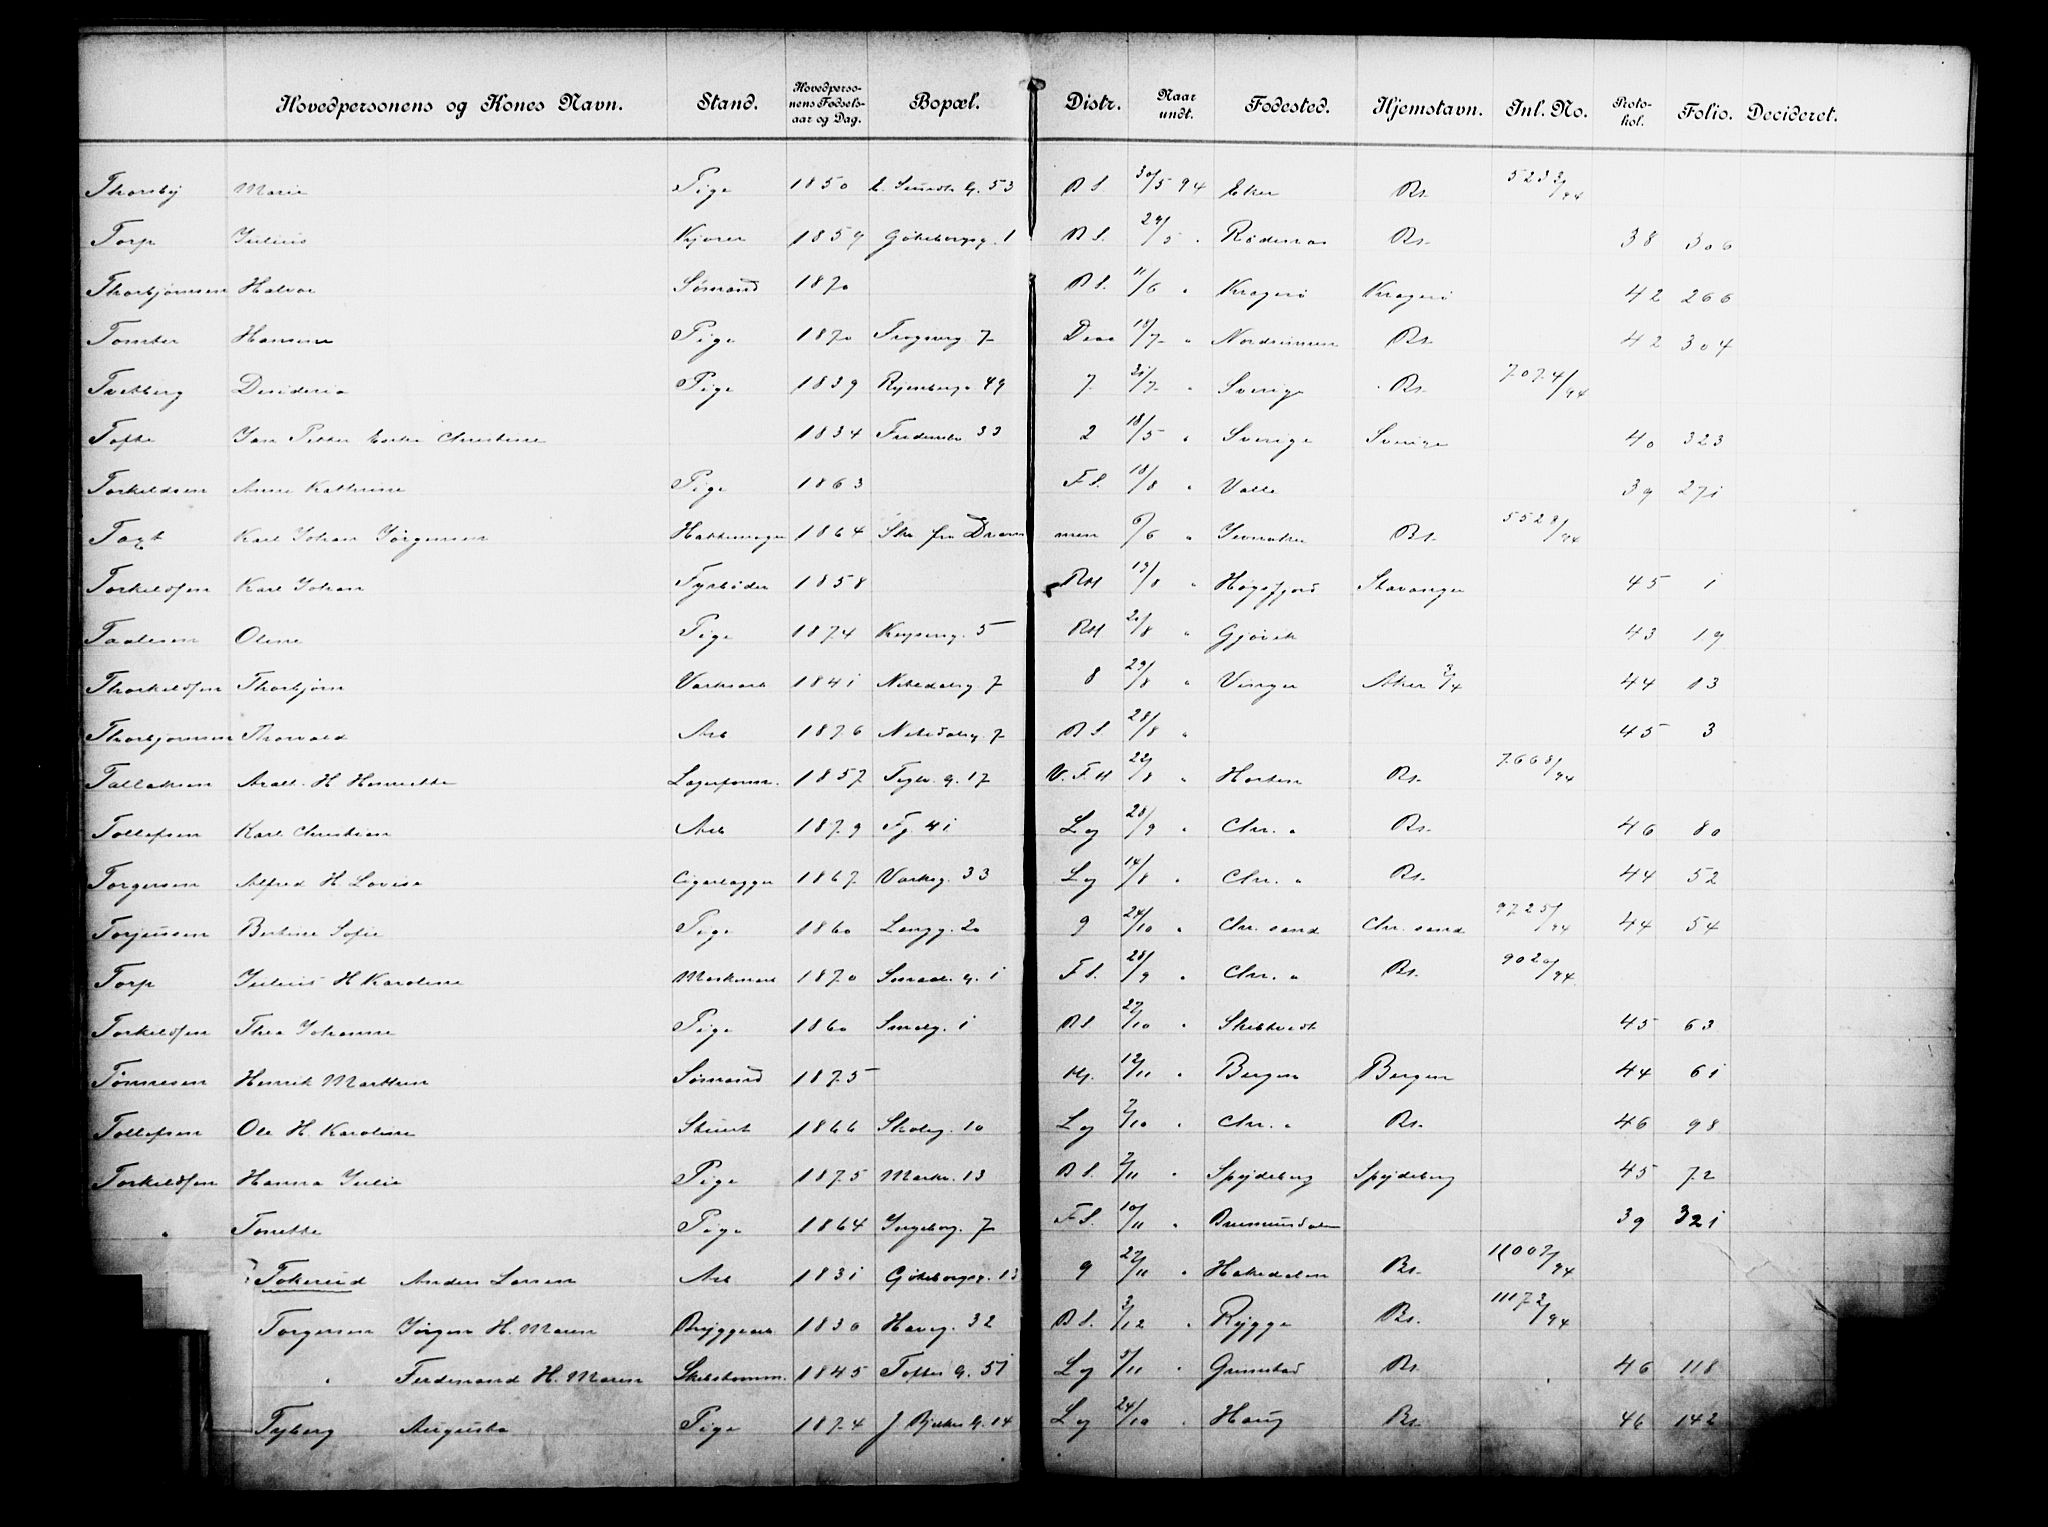 Hovedpersonens og Kones Navn. Stand. Hovedperso-nens Fødsels-aar og Dag. Bopæl. Distr. Naar undt. Fødested. Hjemstavn. Inl. No. Proto-kol. Folio. Decideret.
Thorsby Marie Pige 1850 53 B S 30/5 94 Eker Bs. 5233/94
Torp Julius Kjører 1859 Gøteborgsg. 1 B S. 29/5 " Rødenæs Bs. 38 306
Thorbjørnsen Halvor Sømand 1870 B S. 11/6 " Kragerø Kragerø 42 266
Tomter Hansine Pige 1870 Trogveg 7 18/7 " Bs. 42 304
Tvetberg Desideria Pige 1839 49 7 31/7 " Sverige Bs. 7074/94
Tofte Jan Petter Christine 1834 33 2 18/5 " Sverige Sverige 40 323
Torkildsen Anne Kathrine Pige 1863 F S. 18/8 " Valle 39 271
Karl Johan Jørgensen 1864 Skr fra Drammen 6/6 " Bs. 5528/94
Torkildsen Karl Johan Fyrbøder 1858 RH 13/8 " Høgsfjord Stavanger 45 1
Olene Pige 1874 Keyserg. 5 RH 21/8 " Gjøvik 43 19
Thorkildsen Thorbjørn Værksarb 1841 Nitedalsg 7 8 29/8 " Vinger Aker 3/4 44 13
Thorbjørnsen Thorvald Arb 1876 Nitedalsg. 7 B S 28/8 " 45 3
Tallaksen H. Henriette Lagerform. 1857 17 V. F. H 22/8 " Horten Bs. 7668/94
Tollefsen Karl Christian Arb 1879 41 Lg 28/9 " Chr. a Bs. 46 80
Torgersen Alfred H. Lovise Cigarlægger 1867 Værksg. 33 Lg 14/8 " Chr. a Bs. 44 52
Torjussen Bertine Sofie Pige 1860 Langg. 20 9 24/10 " Chr. sand Chr. sand 9725/94 44 54
Torp Julius H. Karoline Maskinarb 1870 1 F S. 28/9 " Chr. a Bs. 9020/94
Torkildsen Thea Johanne Pige 1860 Smalg. 1 B S. 27/10 " Skibtvedt 45 63
Tønnesen Henrik Marthin Sømand 1875 Hj. 12/11 " Bergen Bergen 44 61
Tollefsen Ole H. Karoline Stuert 1866 Skoleg. 10 Lg 2/10 " Chr. a Bs. 46 98
Torkildsen Hanna Julie Pige 1875 Markv. 13 B S. 2/11 " Spydeberg Spydeberg 45 72
" Tonette Pige 1864 Ingeborg. 7 F S. 10/11 " Brumunddalen 39 321
Tokerud Anders Larsen Arb 1831 Gøteborgsg. 13 9 27/11 " Hakedalen Bs. 11007/94
Torgersen Jørgen H. Maren Bryggearb 1830 Haveg. 32 B S. 3/12 " Rygge Bs. 11173/94
" Ferdinand H. Maren Skibstømm. 1845 Toftes G. 51 Lg 5/11 " Grimstad Bs. 46 118
Tyberg Augusta Pige 1874 J. Bjelkes G. 14 Lg 24/10 " Haug Bs. 46 142